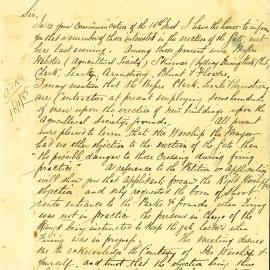 Sir,
In re your Communication of the 18th Inst I have the honor to inform
you that a number of those interested in the erection of the Gate, met
here last evening. Among those present were Messrs
Webster (Agricultural Society),
Clark, Searle, Armstrong, Blunt & Flowers.
I may mention that the Messrs Clark, Searle & Armstrong
are Contractors at present employing some hundreds
of men upon the erection of new buildings upon the
Agricultural Society's grounds. All present
were pleased to learn "that His Worship the Mayor
had no other objection to the erection of the Gate than
the possible danger to those crossing during firing
practice." A reference to the Petition or application
will show you that applicants the
objection and only requested the boon of short
route entrance to the Parks & grounds when firing
was not in practice, the persons in charge of the
being instructed to keep the gate locked when
firing was in progress. The meeting desires
me to acknowledge the Courtesy of His Worship &
yourself, and trust that the objection being thus